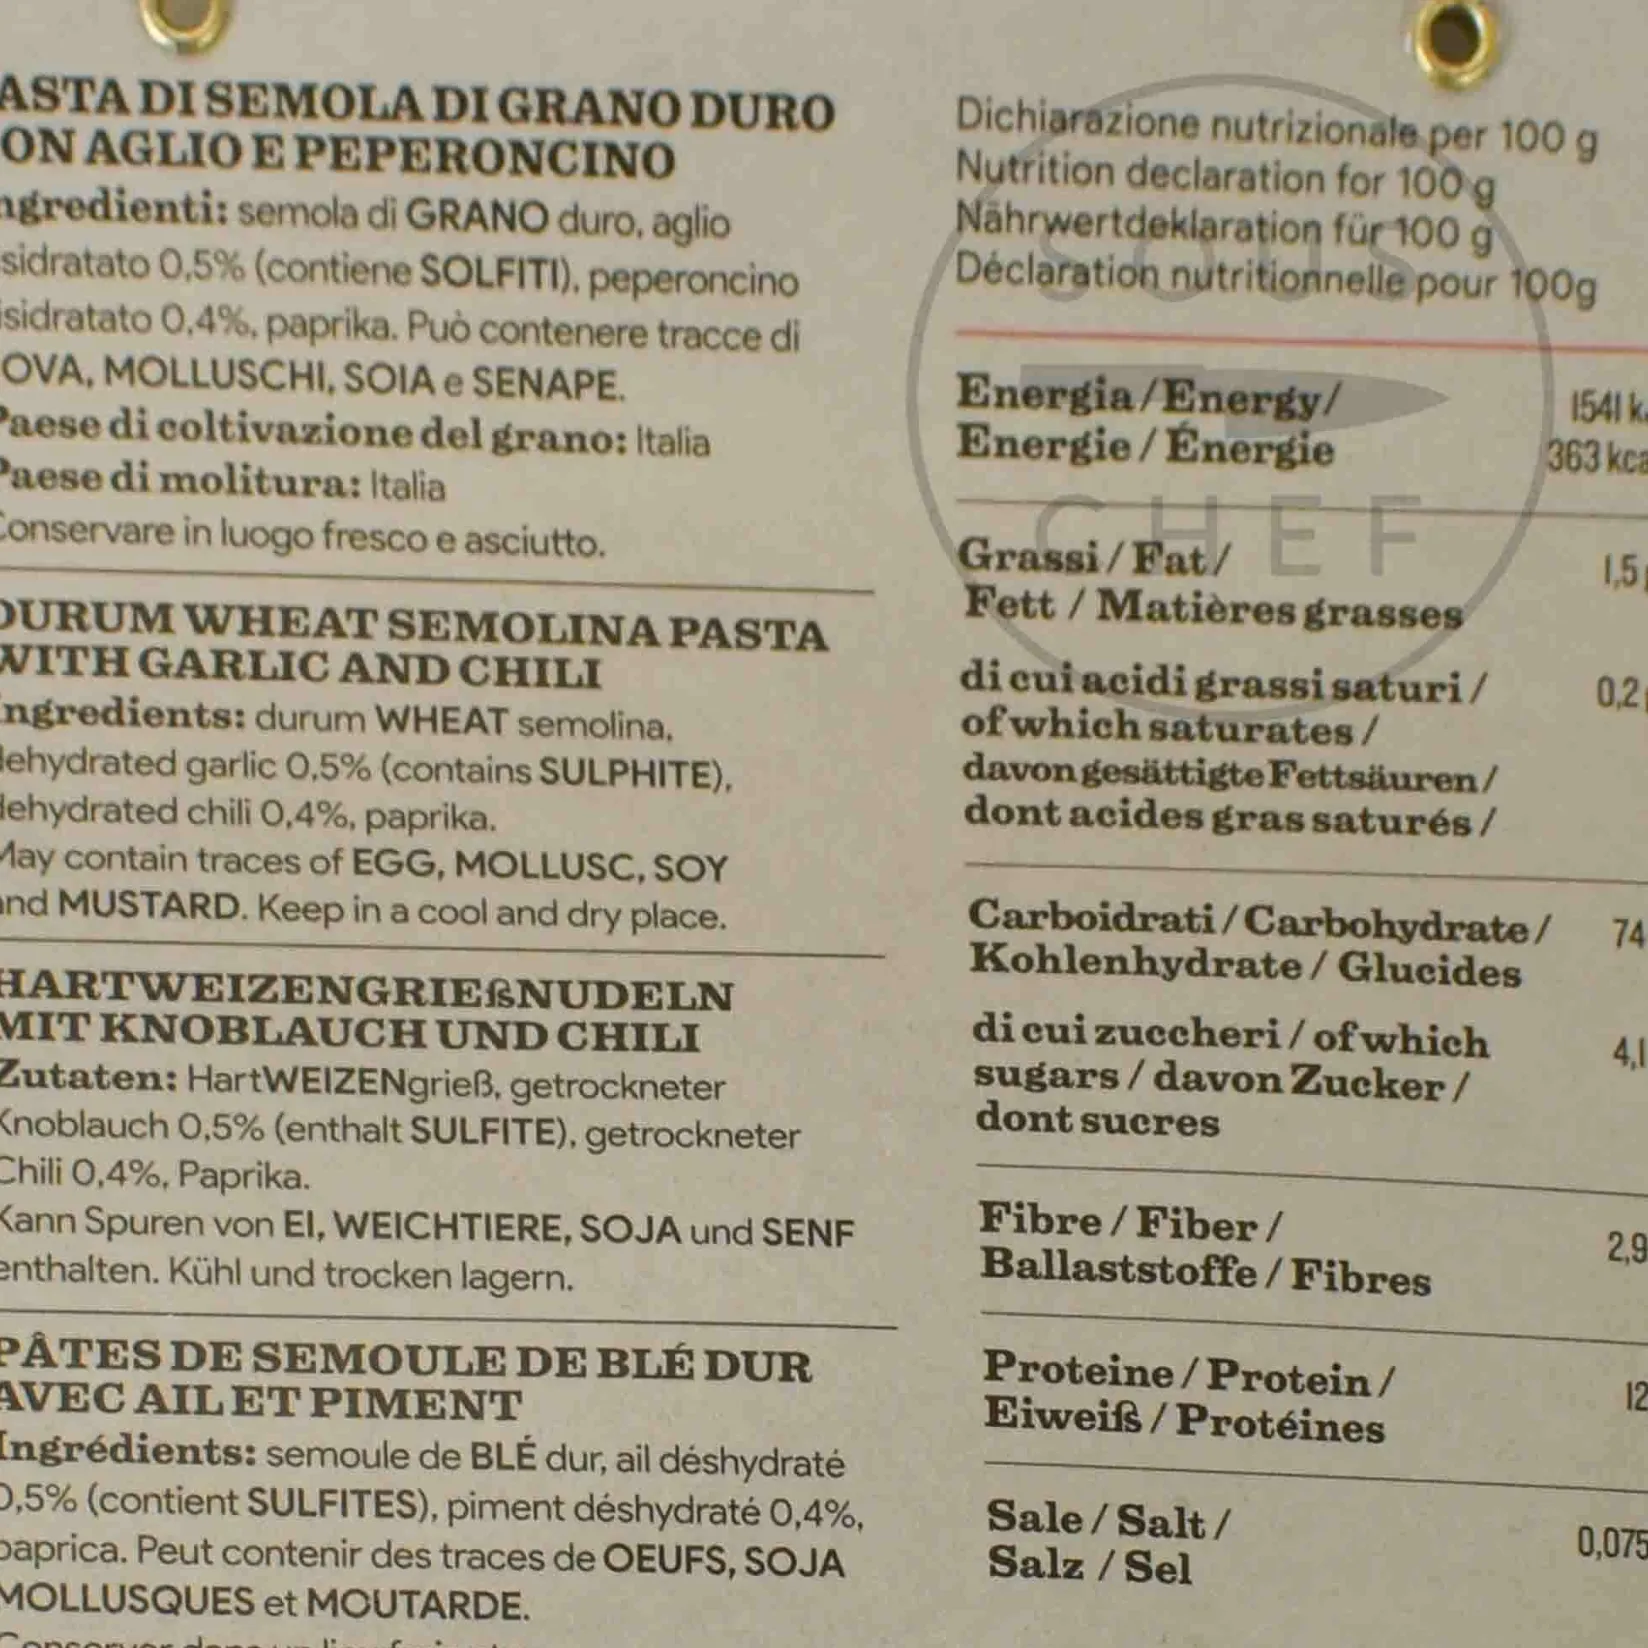 ASTA DI SEMOLA DI GRANO DURO
ON AGLIO E PEPERONCINO
ngredienti: semola di GRANO duro, aglio
sidratato 0,5% (contiene SOLFITI), peperoncino
isidratato 0,4%, paprika. Può contenere tracce di
OVA, MOLLUSCHI, SOIA e SENAPE.
Paese di coltivazione del grano: Italia
Paese di molitura: Italia
Conservare in luogo fresco e asciutto.
DURUM WHEAT SEMOLINA PASTA
WITH GARLIC AND CHILI
Ingredients: durum WHEAT semolina,
dehydrated garlic 0,5% (contains SULPHITE),
dehydrated chili 0,4%, paprika.
May contain traces of EGG, MOLLUSC, SOY
and MUSTARD. Keep in a cool and dry place.
HARTWEIZENGRIEßNUDELN
MIT KNOBLAUCH UND CHILI
Zutaten: HartWEIZENgrieß, getrockneter
Knoblauch 0,5% (enthalt SULFITE), getrockneter
Chili 0,4%, Paprika.
Kann Spuren von EI, WEICHTIERE, SOJA und SENF
enthalten. Kühl und trocken lagern.
PÂTES DE SEMOULE DE BLÉ DUR
AVEC AIL ET PIMENT
Ingrédients: semoule de BLÉ dur, ail déshydraté
0,5% (contient SULFITES), piment déshydraté 0,4%,
paprica. Peut contenir des traces de OEUFS, SOJA
MOLLUSQUES et MOUTARDE.
Dichiarazione nutrizionale per 100 g
Nutrition declaration for 100 g
Nährwertdeklaration für 100 g
Déclaration nutritionnelle pour 100g
SOUS
CHEF
Energia / Energy / 1541 k
Energie / Énergie 363 kca
Grassi / Fat / 1,5
Fett / Matières grasses
di cui acidi grassi saturi / 0,2
of which saturates /
davon gesättigte Fettsäuren /
dont acides gras saturés /
Carboidrati / Carbohydrate / 74
Kohlenhydrate / Glucides
di cui zuccheri / of which 4,1
sugars / davon Zucker /
dont sucres
Fibre / Fiber / 2,9
Ballaststoffe / Fibres
Proteine / Protein / 12
Eiweiß / Protéines
Sale / Salt / 0,075
Salz / Sel